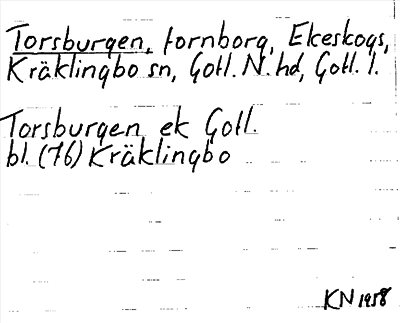 Torsburgen, fornborg, Ekeskogs,
Kräklingbo sn, Gotl. N. hd, Gotl. l.
Torsburgen ek Gotl.
bl. (76) Kräklingbo
KN 1958